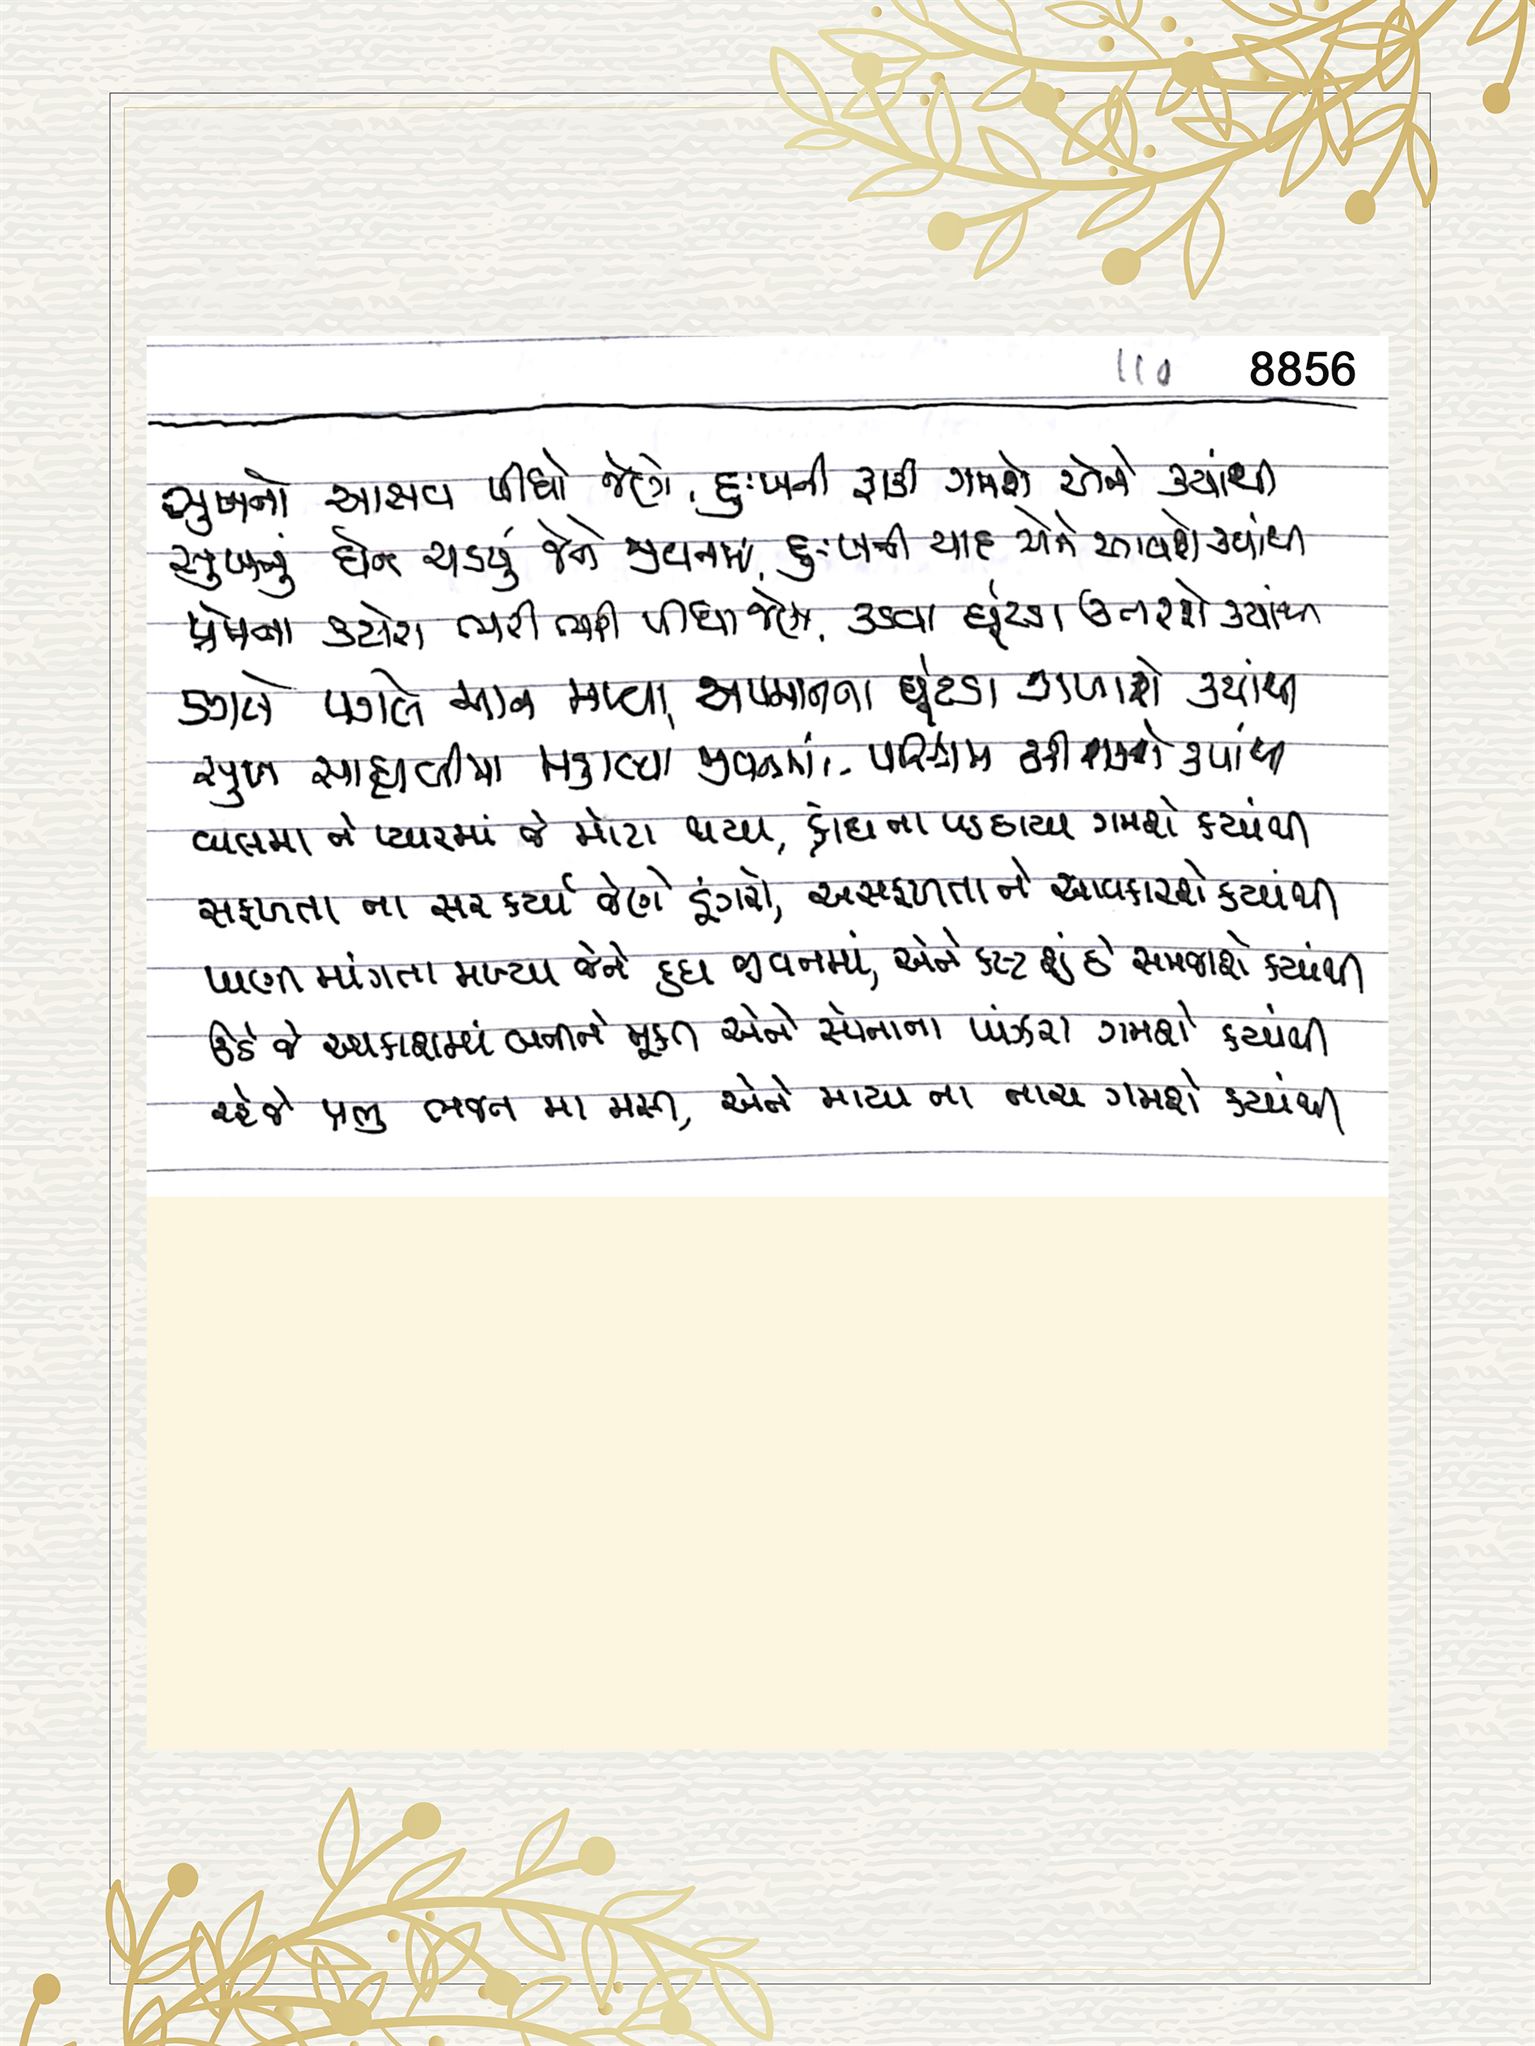 110 8856
સુખનો આસવ પીધો જેણે, દુઃખની રાતી ગમશે એને ક્યાંથી
સુખનું ઘેન ચડયું જેને જીવનમાં, દુઃખની યાદ એને આવશે ક્યાંથી
પ્રેમના કટોરા ભરી ભરી પીધા જેણે, કડવા ઘૂંટડા ઉતરશે ક્યાંથી
ડગલે પગલે માન મળ્યા, અપમાનના ઘૂંટડા ગળાશે ક્યાંથી
સુખ સાહ્યબીમા મહાલ્યા જીવનમાં, પરિશ્રમ કરી શકશે ક્યાંથી
વાલમા ને પ્યારમાં જે મોટા થયા, ક્રોધ ના પડછાયા ગમશે ક્યાંથી
સફળતા ના સર કર્યા જેણે ડૂંગરો, અસફળતા ને આવકારશે ક્યાંથી
પાણી માંગતા મળ્યા જેને દુધ જીવનમાં, એને કષ્ટ શું છે સમજાશે ક્યાંથી
ઉડે જે આકાશમાં બનીને મૂક્ત એને સોનાના પાંજરા ગમશે ક્યાંથી
રહે જે પ્રભુ ભજન મા મસ્ત, એને માયા ના નાચ ગમશે ક્યાંથી